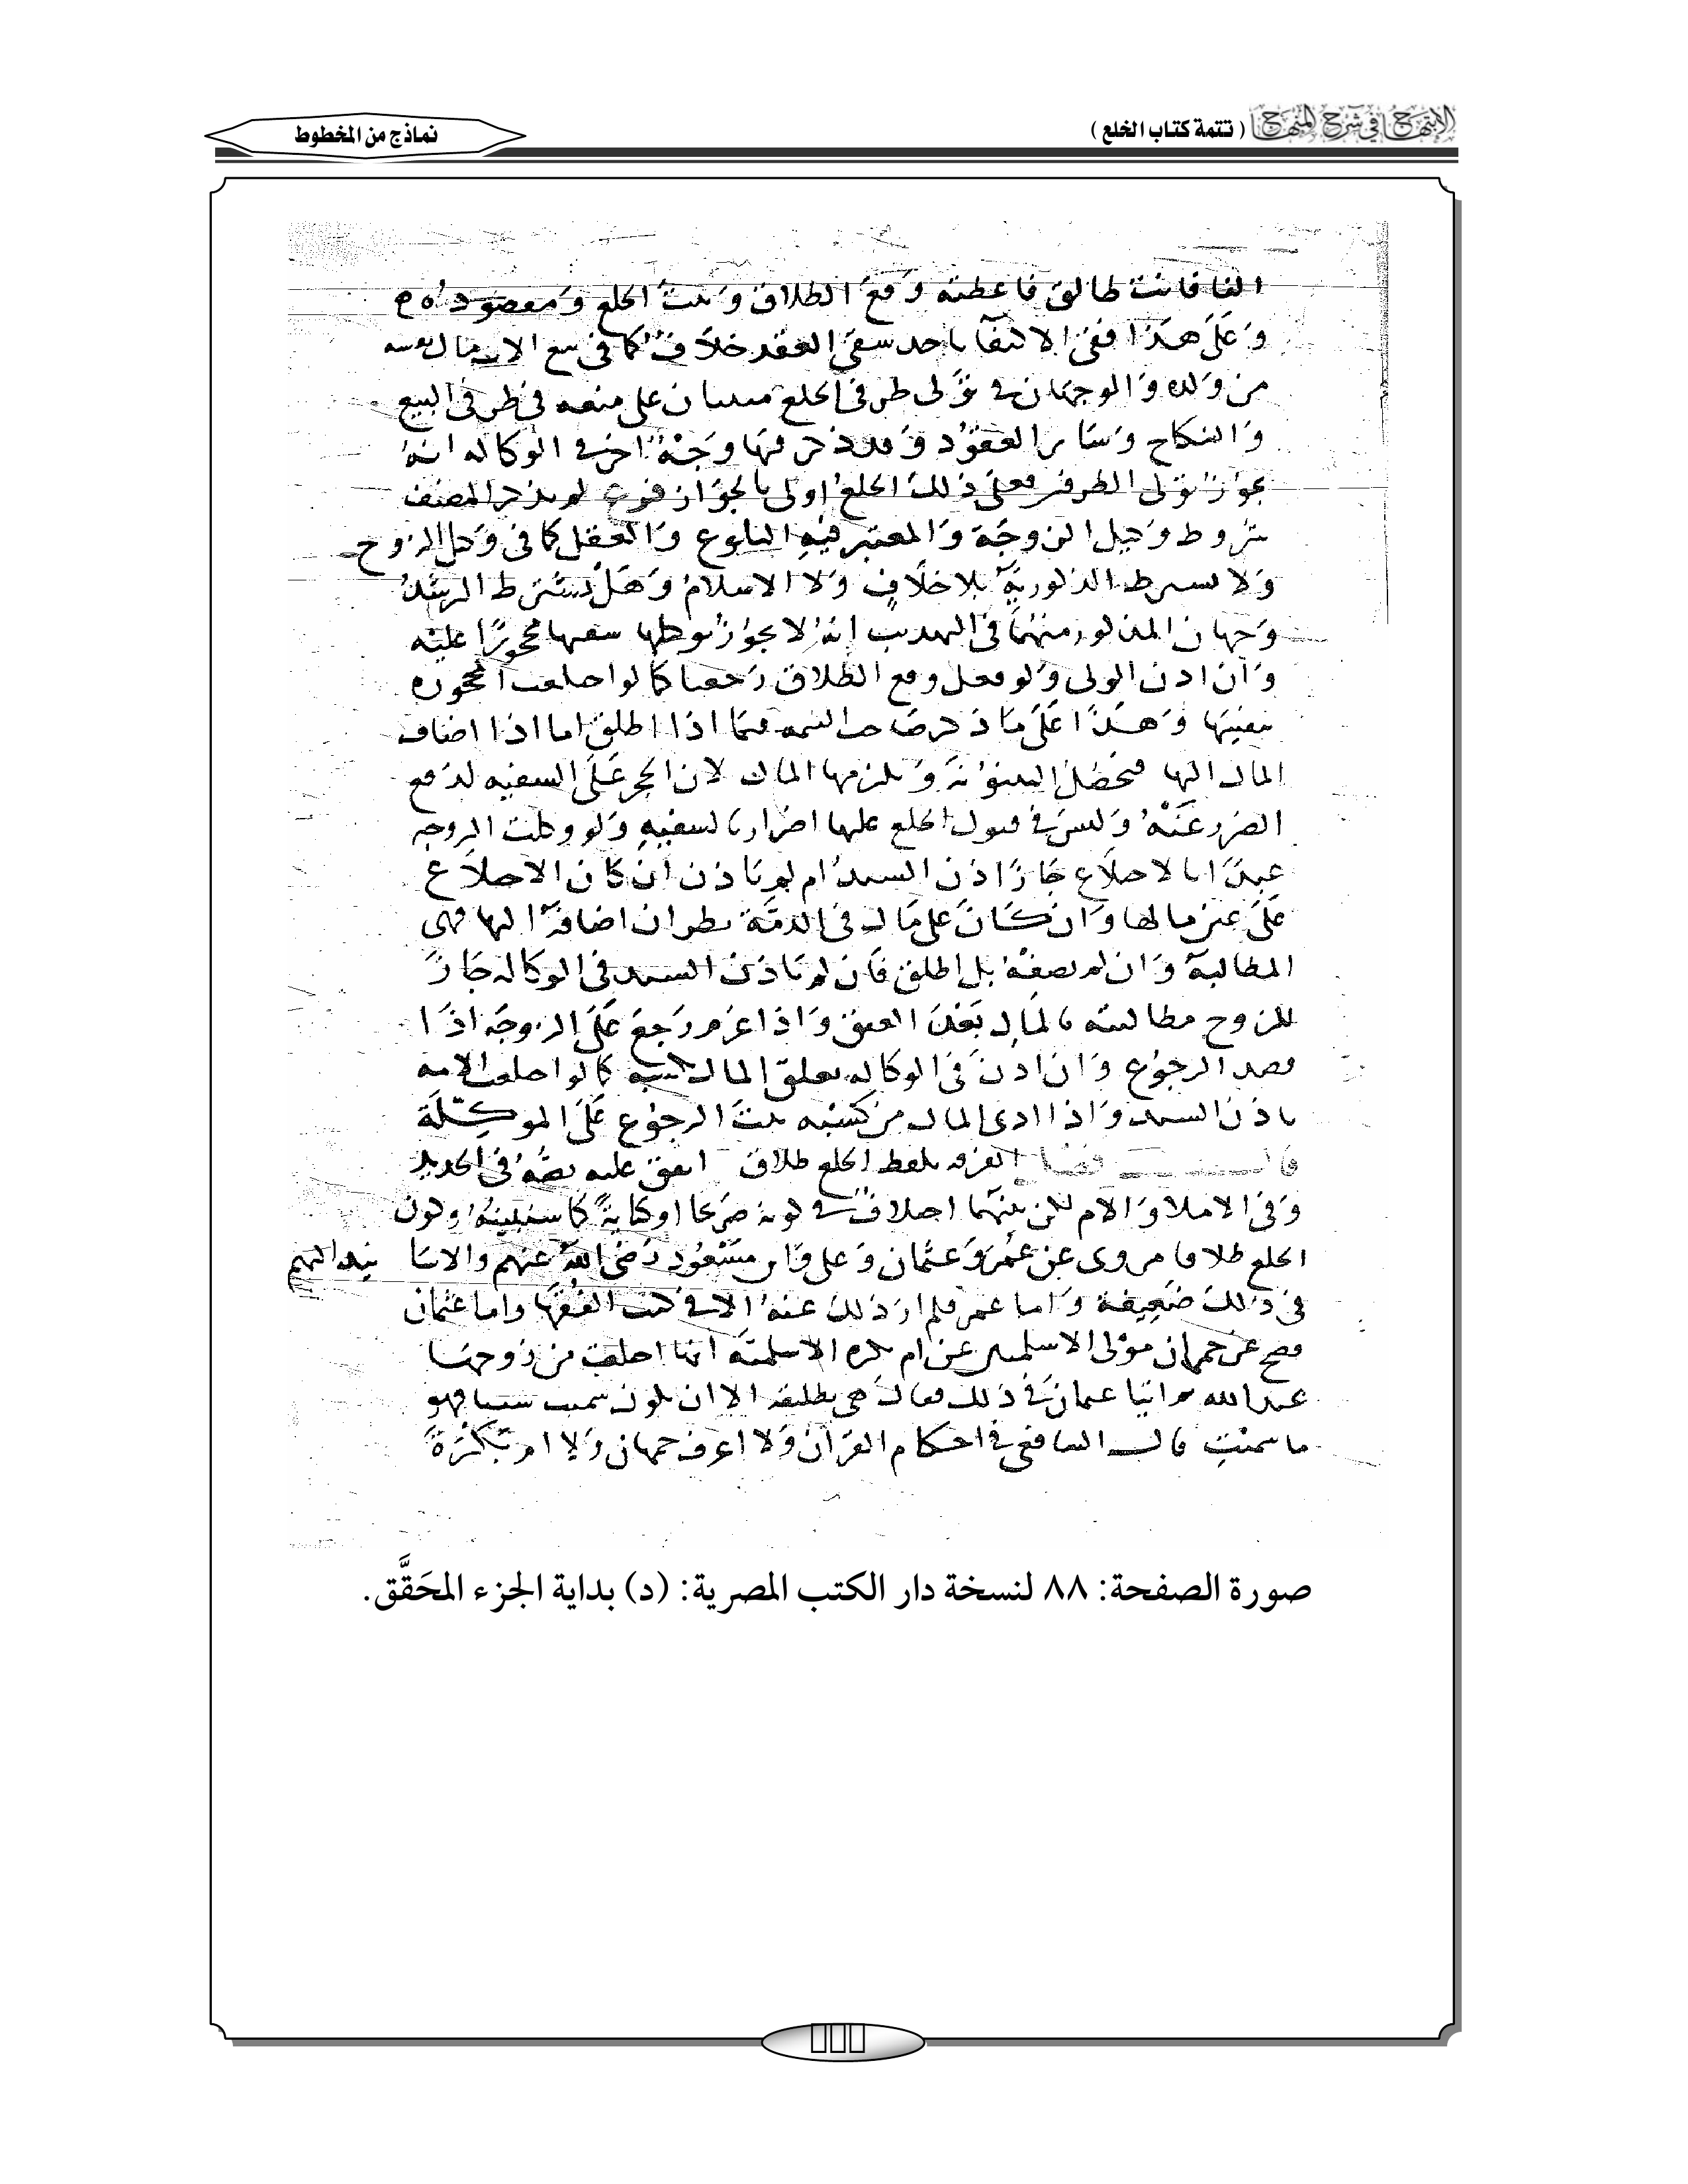 الابتهاج في شرح المنهاج ( تتمة كتاب الخلع )
نماذج من المخطوط
الفا فانت طالق فاعطته وقع الطلاق وثبت الخلع ومقصوده م
وعلى هذا ففي الاكتفا باحد شقي العقد خلاف كما في بيع الاب مال نفسه
من ولده والوجهان في تولى طرفي الخلع مبنيان على منعه في طرفي البيع
والنكاح وساىر العقود وقد ذكر فيها وجه اخر في الوكاله انه
يجوز تولى الطرفين فعلى ذلك الخلع اولى بالجواز فرع لم يذكر المصنف
شروط وكيل الزوجة والمعتبر فيه البلوغ والعقل كما في وكيل الزوج
ولا يشترط الذكورية بلا خلاف ولا الاسلام وهل يشترط الرشد
وجهان المذكور منهما في التهذيب انه لا يجوز توكيلها سفيها محجورا عليه
وان اذن الولى ولو فعل وقع الطلاق رجعيا كما لو اختلعت المحجوره
بنفسها وهذا على ما ذكر صاحب التتمه فيما اذا اطلق اما اذا اضاف
المال اليها فتحصل البينونة ويلزمها المال لان الحجر على السفيه لدفع
الضرر عنه وليس في قبول الخلع عليها اضرار بالسفيه ولو وكلت الزوجه
عبدا بالاختلاع جاز اذن السيد ام لم ياذن ان كان الاختلاع
على عين مالها وان كان على مال في الذمة نظر ان اضافه اليها فهى
المطالبة وان لم يضفه بل اطلق فان لم ياذن السيد في الوكاله جاز
للزوج مطالبته بالمال بعد العتق واذا غرم رجع على الزوجه اذا
قصد الرجوع وان اذن في الوكاله تعلق المال بكسبه كما لو اختلعت الامه
باذن السيد واذا ادى المال من كسبه ثبت الرجوع على الموكلة
قال فصل الفرقه بلفظ الخلع طلاق اتفق عليه نصه في الجديد
وفي الاملا والام لكن بينهما اختلاف في كونه صريحا او كناية كما سنبينه وكون
الخلع طلاقا مروى عن عمر وعثمان وعلى وابن مسعود رضي الله عنهم والاسانيد اليهم
في ذلك ضعيفة واما عمر فلم ار ذلك عنه الا في كتب الفقها واما عثمان
فصح عن جمهان مولى الاسلميين عن ام بكره الاسلمية انها اختلعت من زوجها
عبد الله اتيا عثمان في ذلك فقال هى تطليقه الا ان يكون سميت شييا فهو
ما سميت قال الشافعى في احكام القرآن ولا اعرف جمهان ولا ام بكرة
صورة الصفحة: ٨٨ لنسخة دار الكتب المصرية: (د) بداية الجزء المحَقَّق.